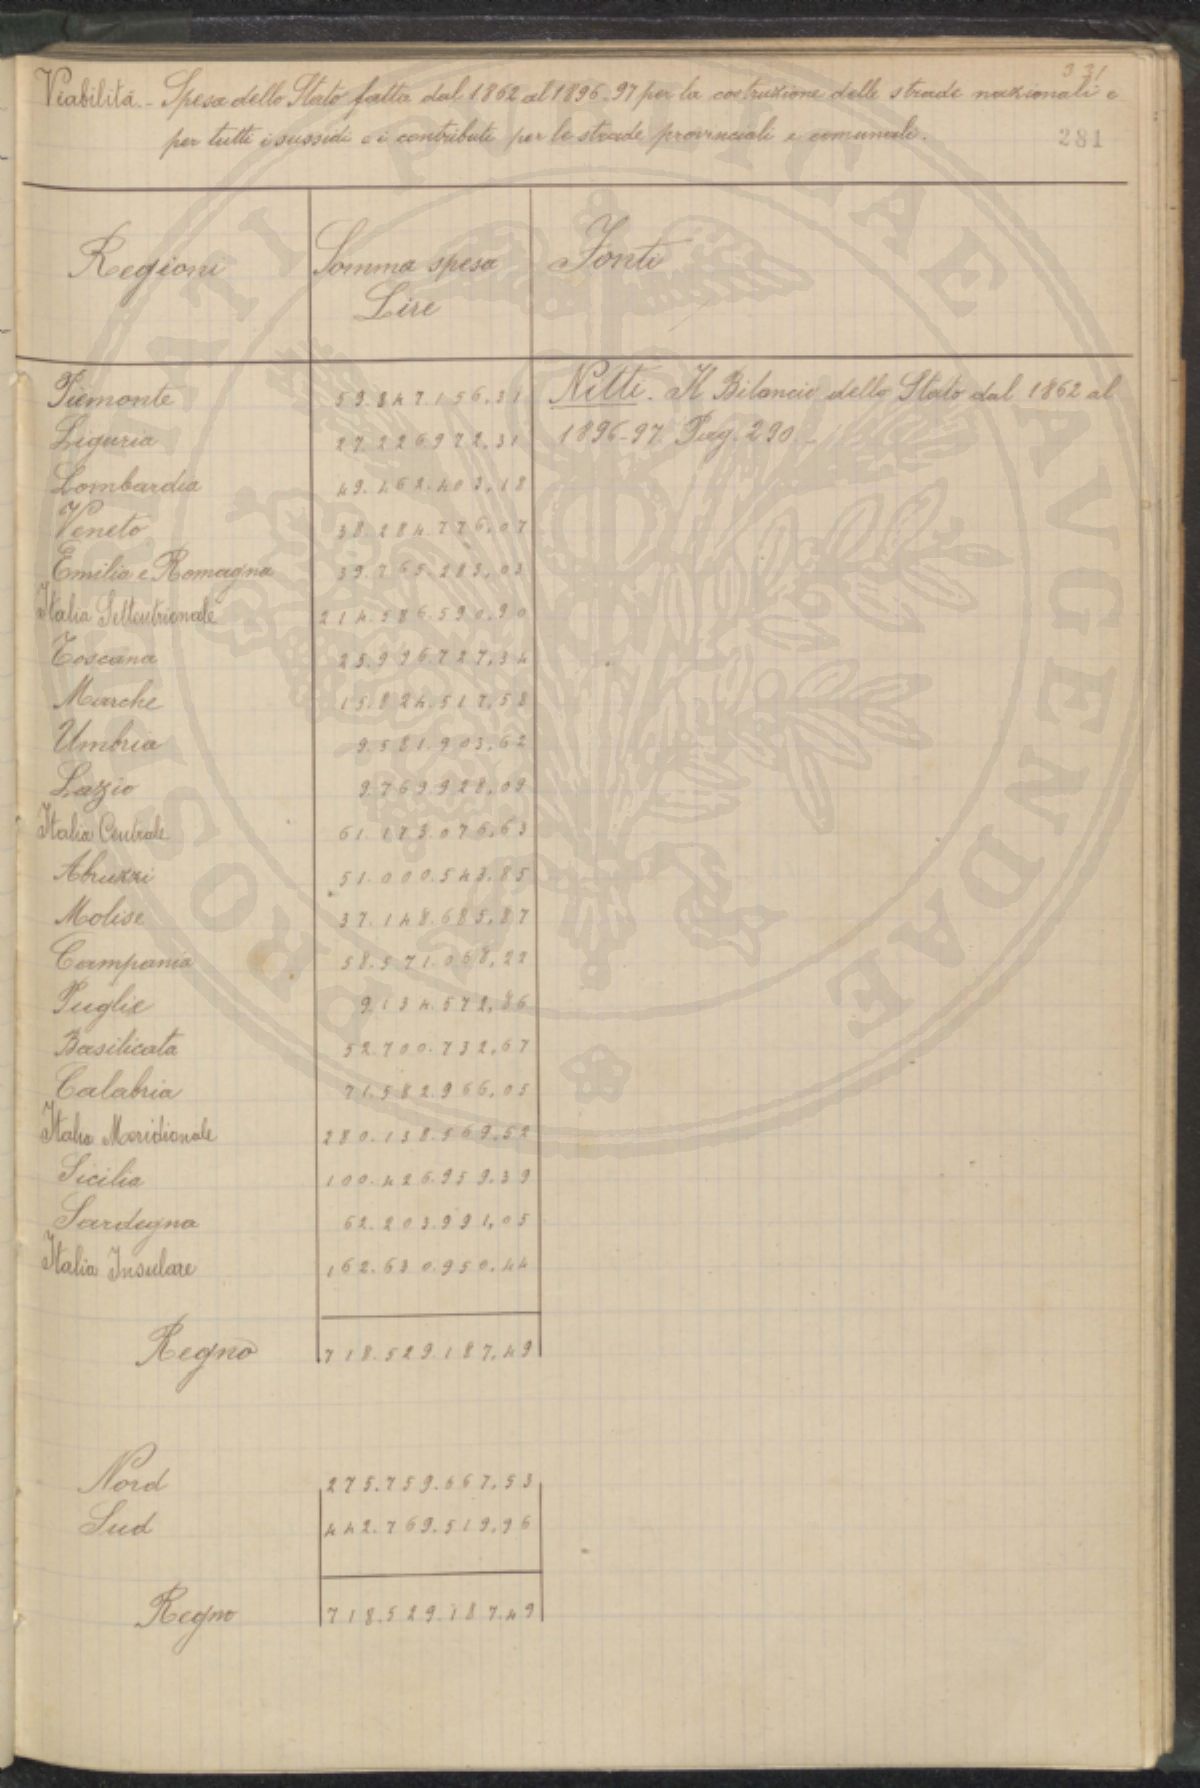 331
Viabilità.- Spesa dello Stato fatta dal 1862 al 1896-97 per la costruzione delle strade nazionali e
per tutti i sussidi e i contributi per le strade provinciali e comunali.
281
Regioni Somma spesa Fonti
Lire
Piemonte 59.847.156,31 Nitti. Il Bilancio dello Stato dal 1862 al
Liguria 27.226.972,31 1896-97. Pag. 290.-
Lombardia 49.462.403,18
Veneto 38.284.776,07
Emilia e Romagna 39.765.283,03
Italia Settentrionale 214.586.590,90
Toscana 25.996.727,34
Marche 15.824.517,58
Umbria 9.581.903,62
Lazio 9.769.928,09
Italia Centrale 61.173.076,63
Abruzzi 51.000.543,85
Molise 37.148.685,87
Campania 58.571.068,22
Puglie 9.134.572,86
Basilicata 52.700.732,67
Calabria 71.582.966,05
Italia Meridionale 280.138.569,52
Sicilia 100.426.959,39
Sardegna 62.203.991,05
Italia Insulare 162.630.950,44
Regno 718.529.187,49
Nord 275.759.667,53
Sud 442.769.519,96
Regno 718.529.187,49